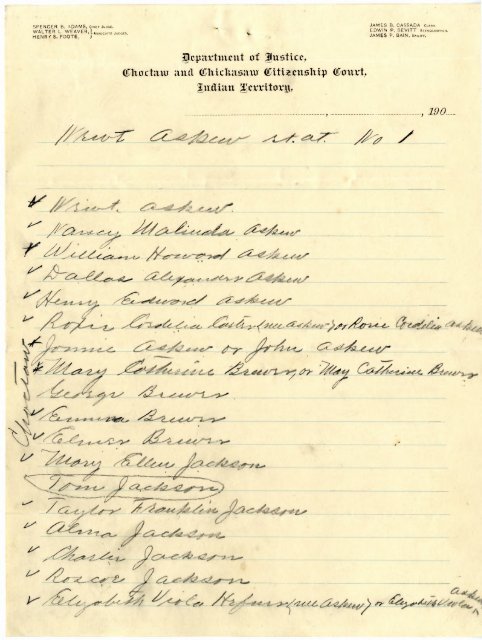 SPENCER B. ADAMS, CHIEF JUDGE.
WALTER L. WEAVER,
HENRY S. FOOTE, ASSOCIATE JUDGES.
JAMES B. CASSADA, CLERK.
EDWIN R. DEVITT, STENOGRAPHER.
JAMES P. BAIN, BAILIFF.
Department of Justice,
Choctaw and Chickasaw Citizenship Court,
Indian Territory,
, 190
Wirt Askew et. at. No 1
Wirt. Askew.
Nancy Malinda Askew
William Howard Askew
Dallas Alexander Askew
Henry Edward Askew
Roxie Cordelia (nee Askew) or Roxie Cordelia Askew
Jonnie Askew or John Askew
Mary Catherine Brewer, or May Catherine Brewer
George Brewer
Emma Brewer
Elmer Brewer
Mary Ellen Jackson
Tom Jackson
Taylor Franklin Jackson
Alma Jackson
Charlie Jackson
Roscoe Jackson
Elizabeth Viola (nee Askew) or Elizabeth Viola Askew
Choctaw